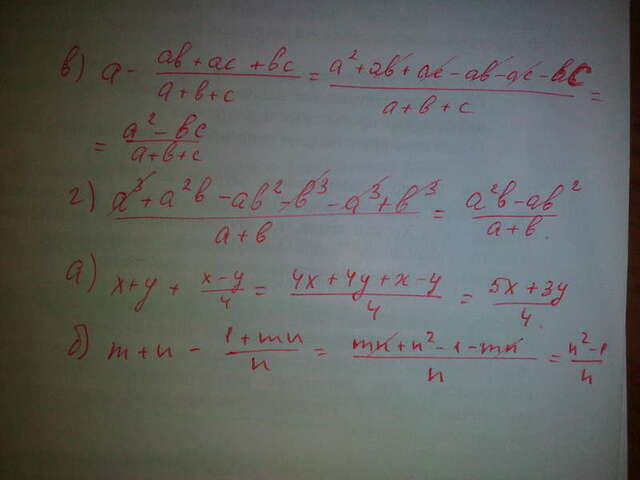 в) a - \frac{ab + ac + bc}{a + b + c} = \frac{a^2 + ab + ac - ab - ac - bc}{a + b + c} =
= \frac{a^2 - bc}{a + b + c}
г) \frac{a^3 + a^2b - ab^2 - b^3 - a^3 + b^3}{a + b} = \frac{a^2b - ab^2}{a + b}.
а) x + y + \frac{x - y}{4} = \frac{4x + 4y + x - y}{4} = \frac{5x + 3y}{4}.
б) m + n - \frac{1 + mn}{n} = \frac{mn + n^2 - 1 - mn}{n} = \frac{n^2 - 1}{n}